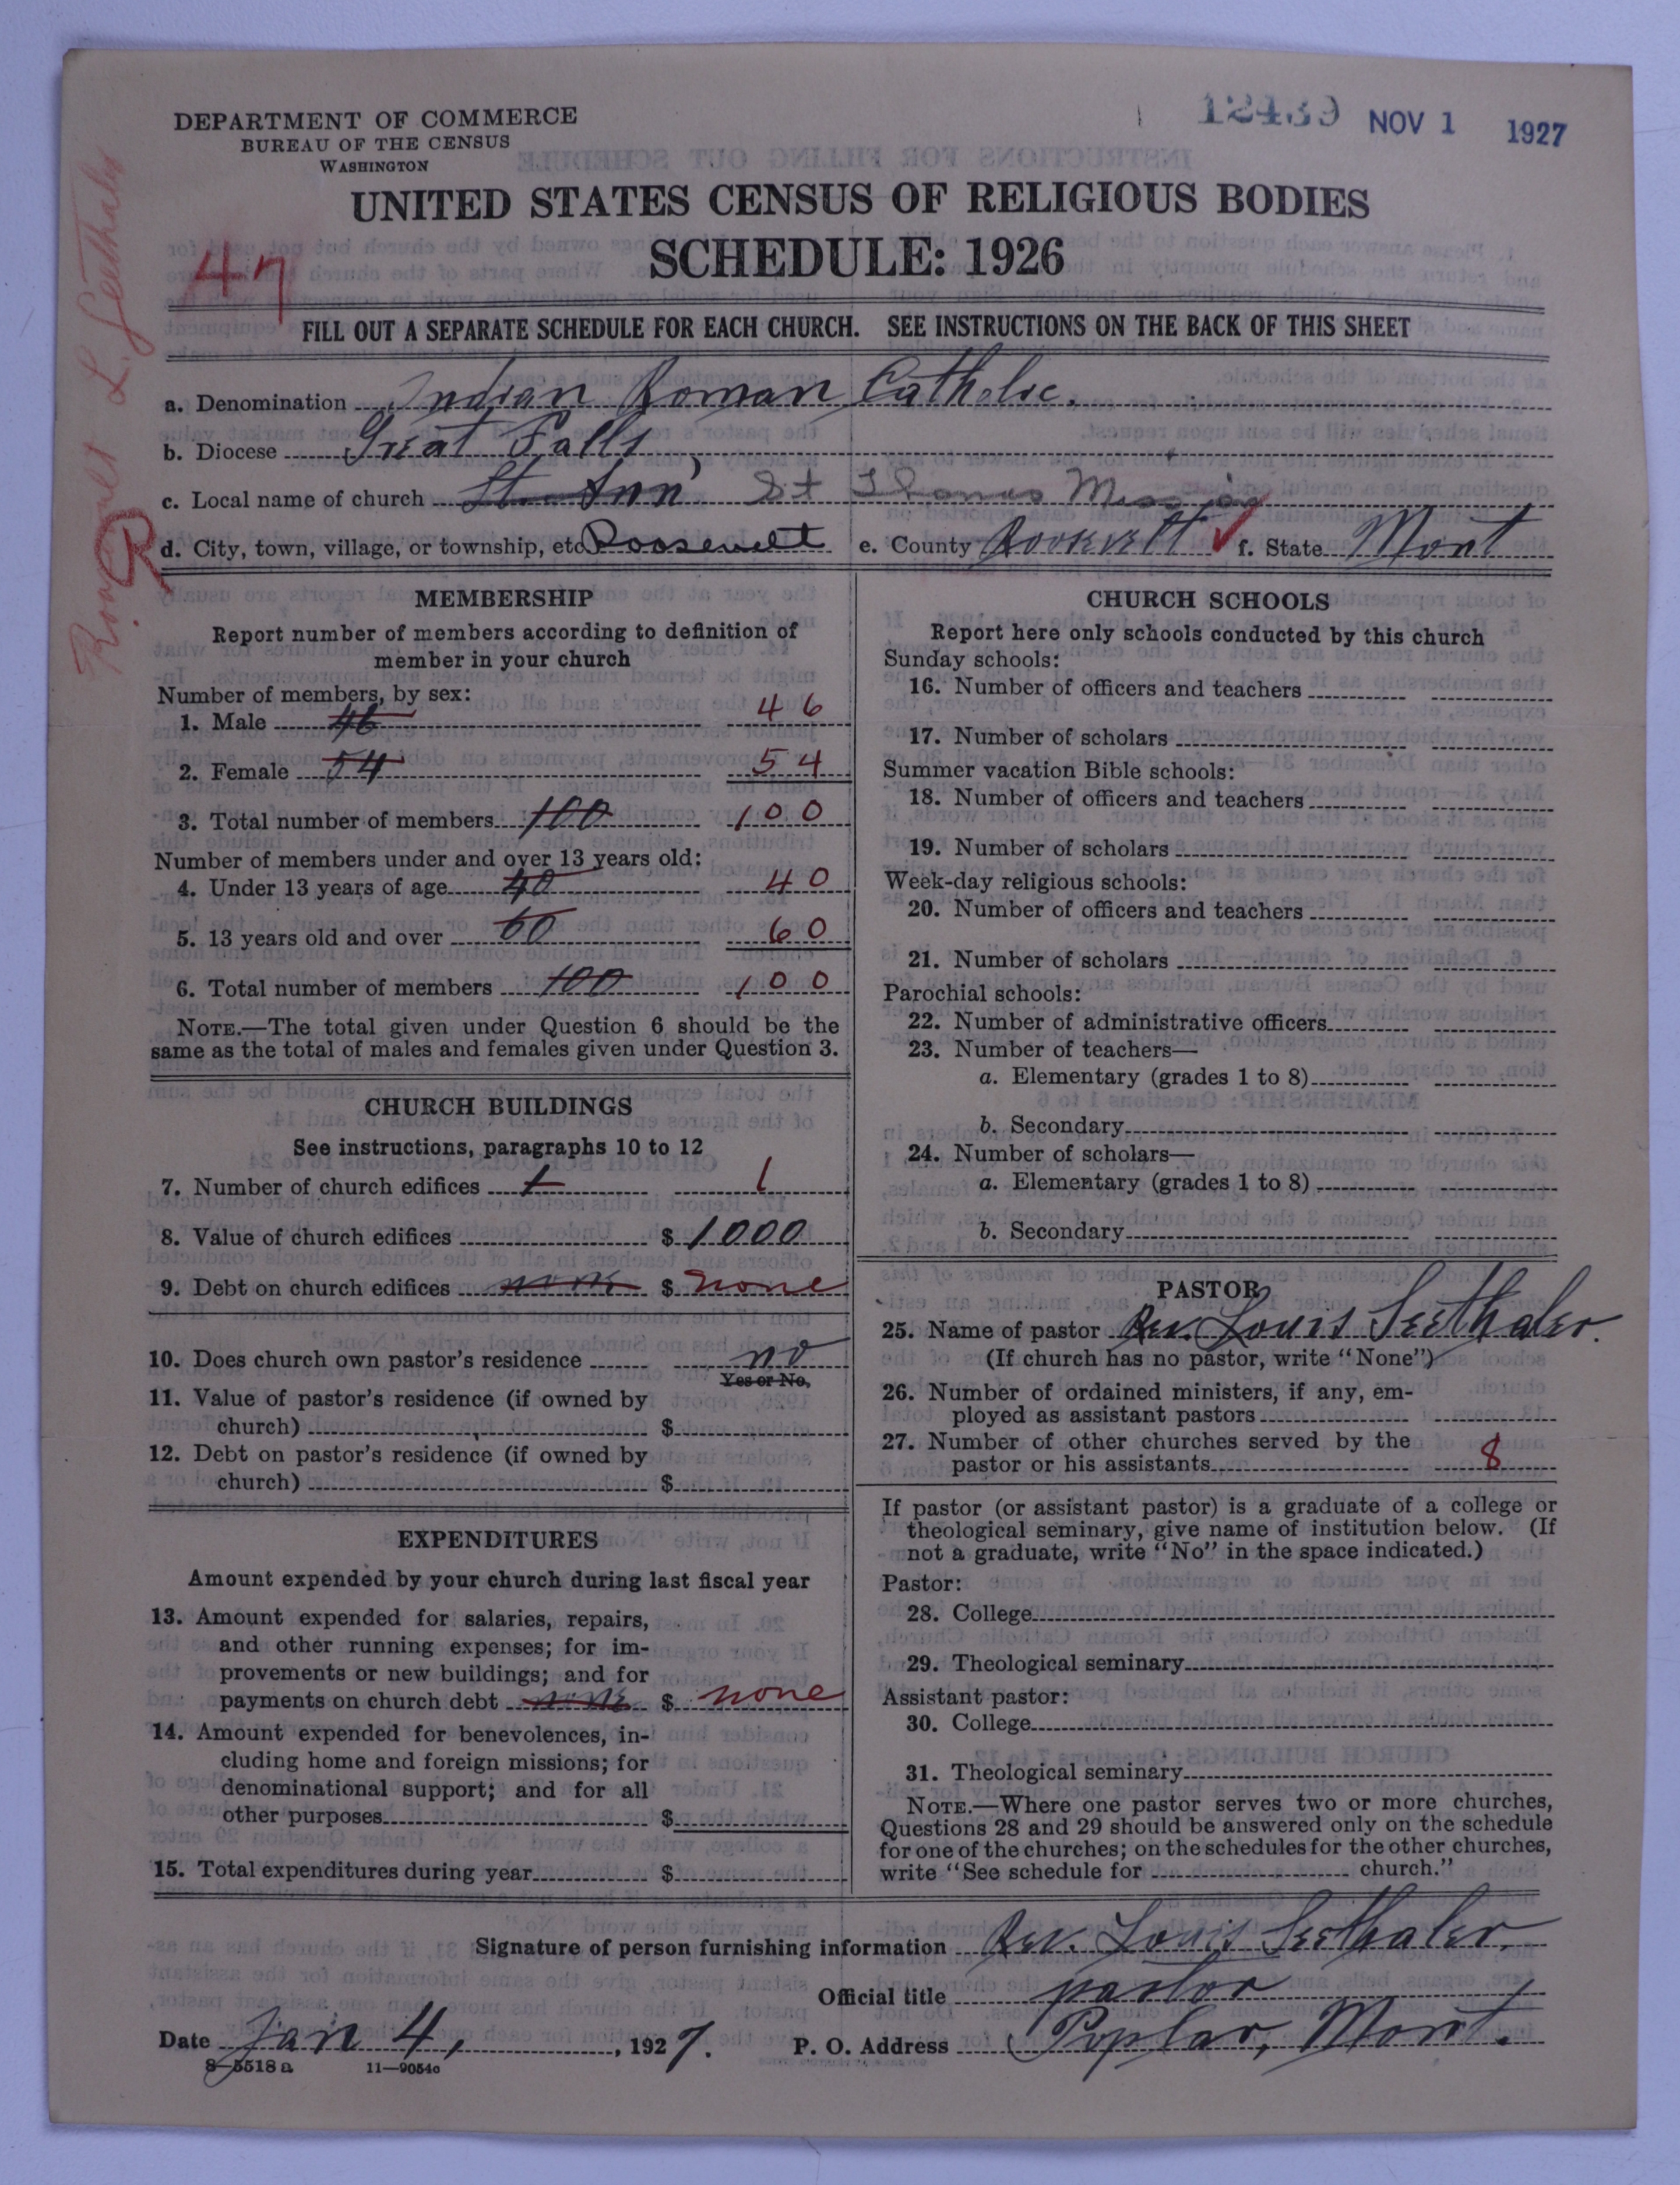 12439 NOV 1 1927
DEPARTMENT OF COMMERCE
BUREAU OF THE CENSUS
WASHINGTON
UNITED STATES CENSUS OF RELIGIOUS BODIES
SCHEDULE: 1926
47
Roosevelt L. Seethaler
R
FILL OUT A SEPARATE SCHEDULE FOR EACH CHURCH. SEE INSTRUCTIONS ON THE BACK OF THIS SHEET
a. Denomination Indian Roman Catholic.
b. Diocese Great Falls
c. Local name of church St. Ann St Thomas Mission
d. City, town, village, or township, etc. Roosevelt e. County Roosevelt f. State Mont
MEMBERSHIP
Report number of members according to definition of
member in your church
Number of members, by sex:
1. Male 46 46
2. Female 54 54
3. Total number of members 100 100
Number of members under and over 13 years old:
4. Under 13 years of age 40 40
5. 13 years old and over 60 60
6. Total number of members 100 100
NOTE.—The total given under Question 6 should be the
same as the total of males and females given under Question 3.
CHURCH BUILDINGS
See instructions, paragraphs 10 to 12
7. Number of church edifices 1 1
8. Value of church edifices $ 1000
9. Debt on church edifices none $ none
10. Does church own pastor's residence no
Yes or No.
11. Value of pastor's residence (if owned by
church) $
12. Debt on pastor's residence (if owned by
church) $
EXPENDITURES
Amount expended by your church during last fiscal year
13. Amount expended for salaries, repairs,
and other running expenses; for im-
provements or new buildings; and for
payments on church debt none $ none
14. Amount expended for benevolences, in-
cluding home and foreign missions; for
denominational support; and for all
other purposes $
15. Total expenditures during year $
CHURCH SCHOOLS
Report here only schools conducted by this church
Sunday schools:
16. Number of officers and teachers
17. Number of scholars
Summer vacation Bible schools:
18. Number of officers and teachers
19. Number of scholars
Week-day religious schools:
20. Number of officers and teachers
21. Number of scholars
Parochial schools:
22. Number of administrative officers
23. Number of teachers—
a. Elementary (grades 1 to 8)
b. Secondary
24. Number of scholars—
a. Elementary (grades 1 to 8)
b. Secondary
PASTOR
25. Name of pastor Rev. Louis Seethaler.
(If church has no pastor, write "None")
26. Number of ordained ministers, if any, em-
ployed as assistant pastors
27. Number of other churches served by the
pastor or his assistants 8
If pastor (or assistant pastor) is a graduate of a college or
theological seminary, give name of institution below. (If
not a graduate, write "No" in the space indicated.)
Pastor:
28. College
29. Theological seminary
Assistant pastor:
30. College
31. Theological seminary
NOTE.—Where one pastor serves two or more churches,
Questions 28 and 29 should be answered only on the schedule
for one of the churches; on the schedules for the other churches,
write "See schedule for church."
Signature of person furnishing information Rev. Louis Seethaler.
Official title pastor
Date Jan 4, , 1927. P. O. Address Poplar, Mont.
8-5518 a 11—9054c